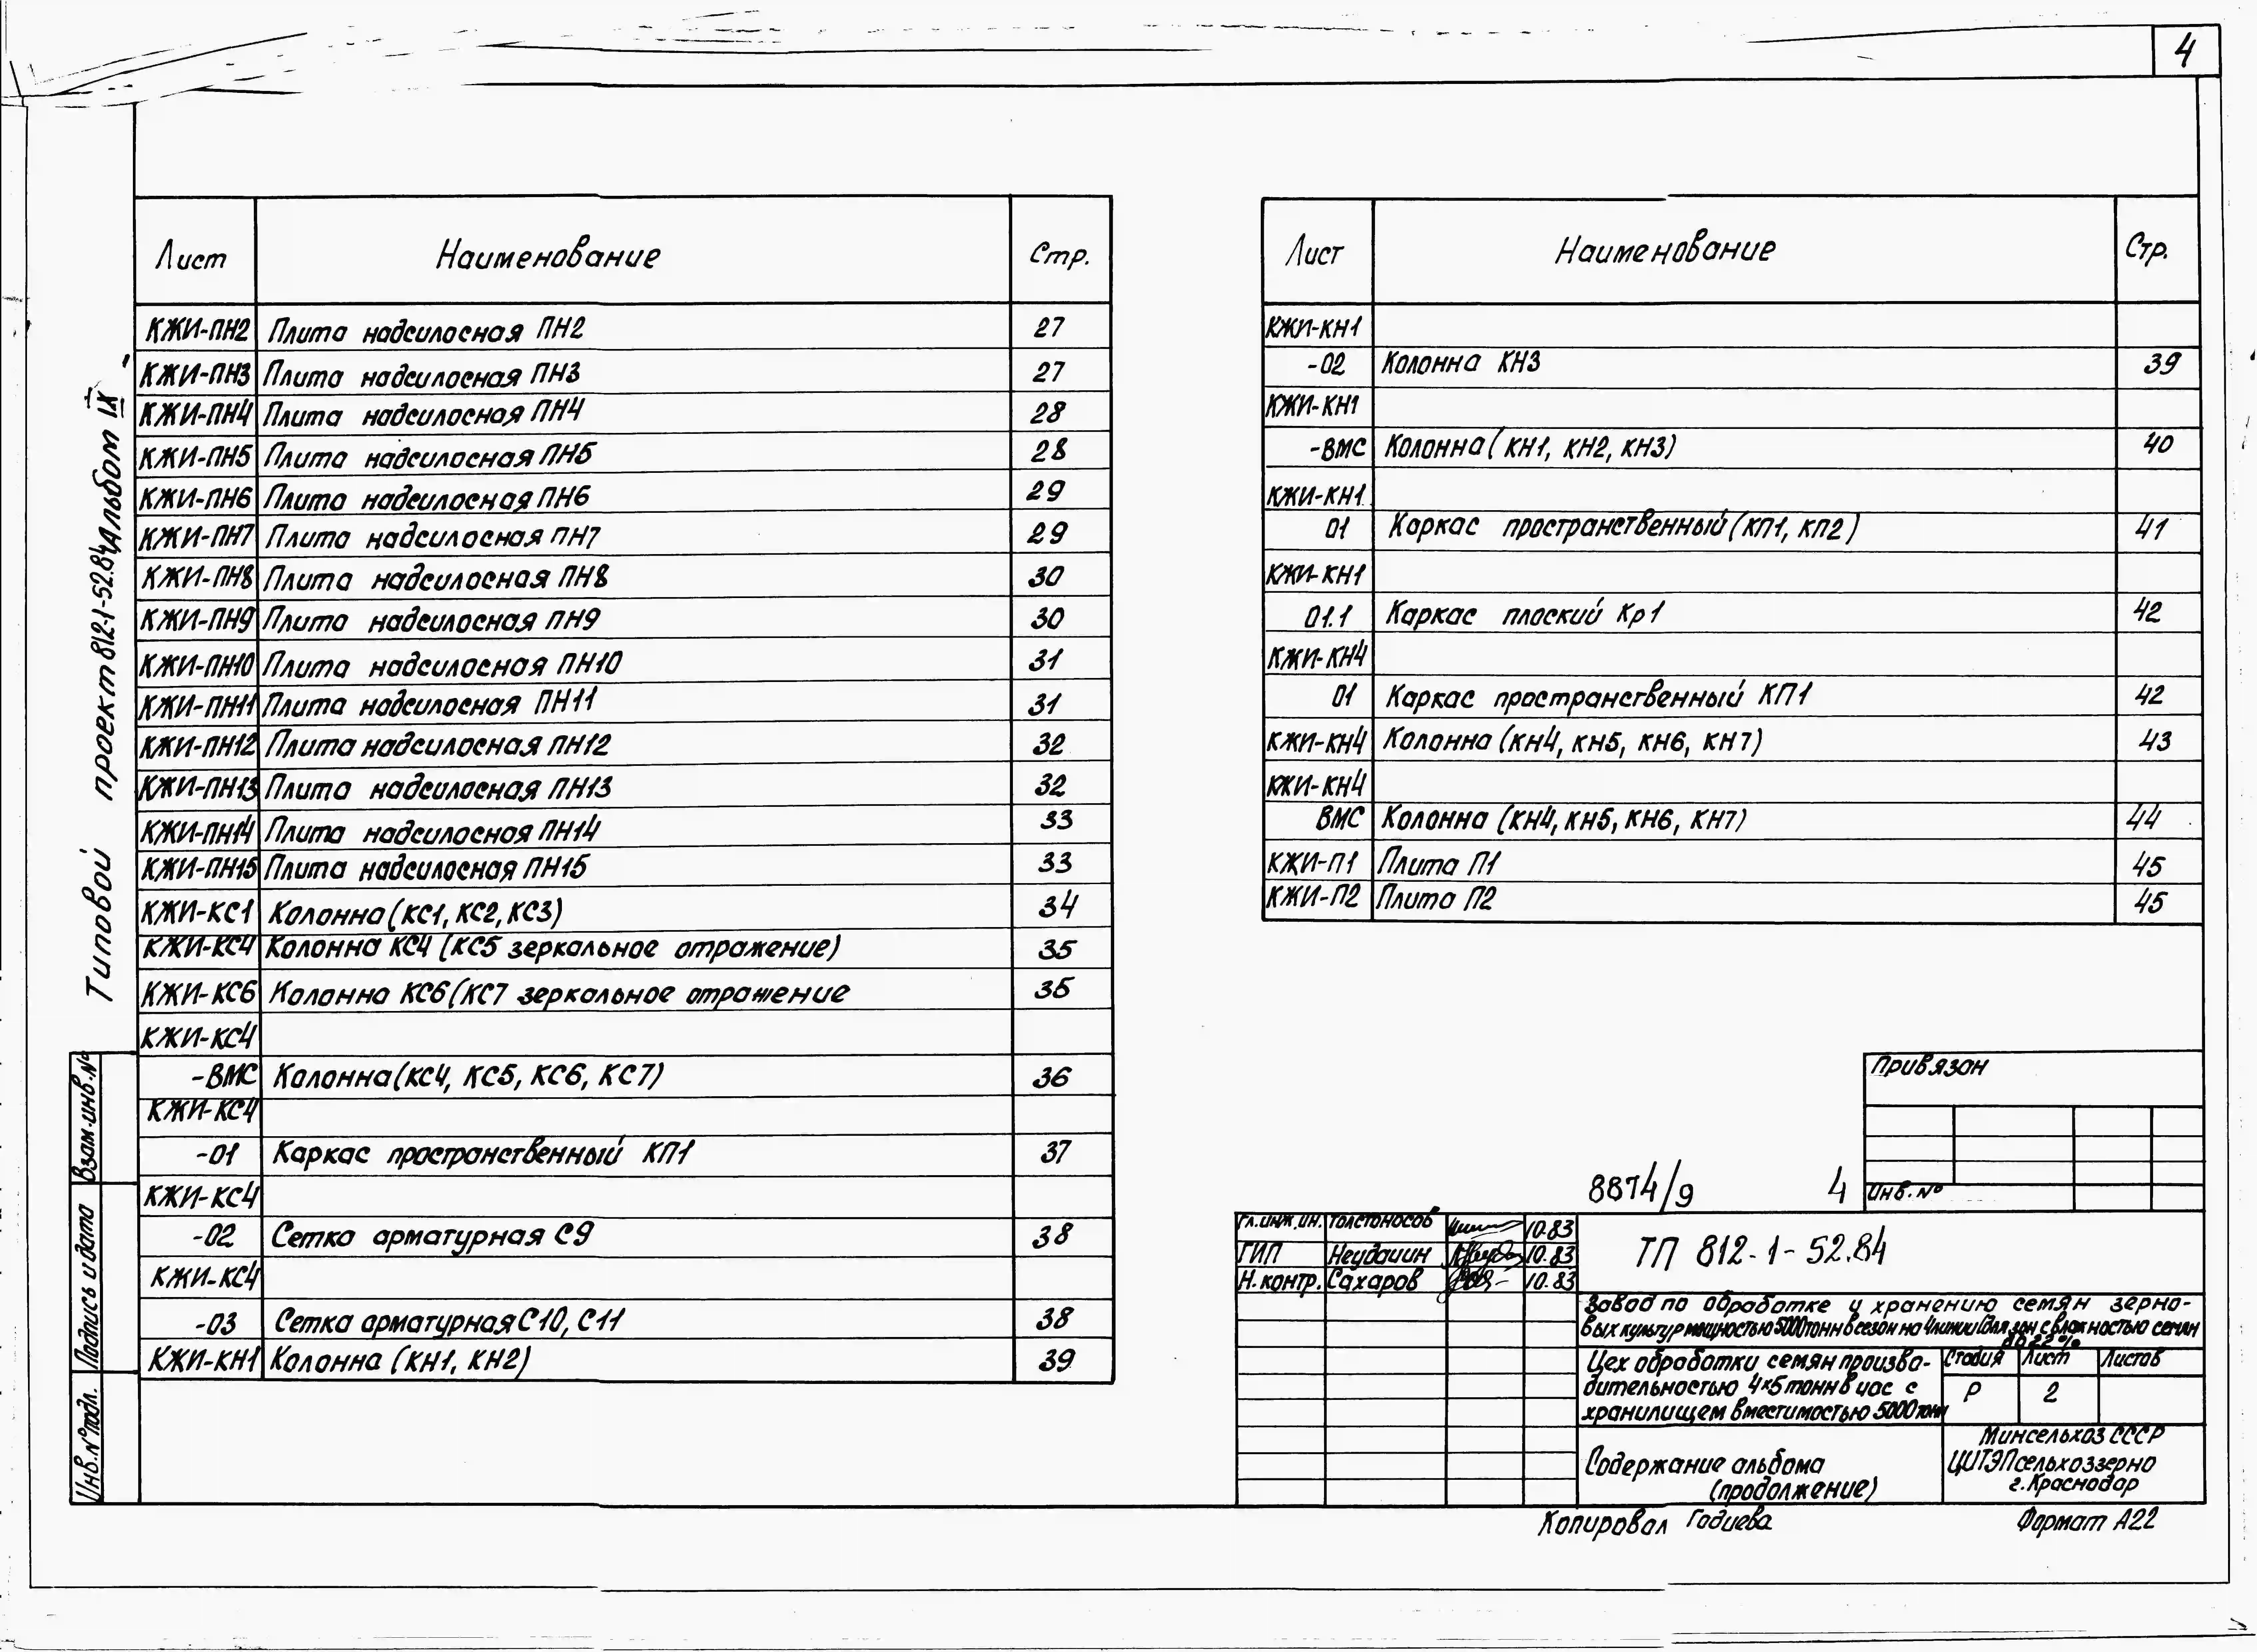 4
Лист Наименование Стр.
КЖИ-ПН2 Плита надсилосная ПН2 27
КЖИ-ПН3 Плита надсилосная ПН3 27
КЖИ-ПН4 Плита надсилосная ПН4 28
КЖИ-ПН5 Плита надсилосная ПН5 28
КЖИ-ПН6 Плита надсилосная ПН6 29
КЖИ-ПН7 Плита надсилосная ПН7 29
КЖИ-ПН8 Плита надсилосная ПН8 30
КЖИ-ПН9 Плита надсилосная ПН9 30
КЖИ-ПН10 Плита надсилосная ПН10 31
КЖИ-ПН11 Плита надсилосная ПН11 31
КЖИ-ПН12 Плита надсилосная ПН12 32
КЖИ-ПН13 Плита надсилосная ПН13 32
КЖИ-ПН14 Плита надсилосная ПН14 33
КЖИ-ПН15 Плита надсилосная ПН15 33
КЖИ-КС1 Колонна (КС1, КС2, КС3) 34
КЖИ-КС4 Колонна КС4 (КС5 зеркальное отражение) 35
КЖИ-КС6 Колонна КС6 (КС7 зеркальное отражение 35
КЖИ-КС4
-ВМС Колонна (КС4, КС5, КС6, КС7) 36
КЖИ-КС4
-01 Каркас пространственный КП1 37
КЖИ-КС4
-02 Сетка арматурная С9 38
КЖИ-КС4
-03 Сетка арматурная С10, С11 38
КЖИ-КН1 Колонна (КН1, КН2) 39
Лист Наименование Стр.
КЖИ-КН1
-02 Колонна КН3 39
КЖИ-КН1
-ВМС Колонна (КН1, КН2, КН3) 40
КЖИ-КН1
01 Каркас пространственный (КП1, КП2) 41
КЖИ-КН1
01.1 Каркас плоский Кр1 42
КЖИ-КН4
01 Каркас пространственный КП1 42
КЖИ-КН4 Колонна (КН4, КН5, КН6, КН7) 43
КЖИ-КН4
ВМС Колонна (КН4, КН5, КН6, КН7) 44
КЖИ-П1 Плита П1 45
КЖИ-П2 Плита П2 45
Типовой проект 812-1-52.84 Альбом IX
Взам.инв.№
Подпись и дата
Инв.№ подл.
Привязан
Инв.№
8874/9 4
Гл.инж.ин. Толстоносов 10.83
ГИП Неудачин 10.83
Н.контр. Сахаров 10.83
ТП 812-1-52.84
Завод по обработке и хранению семян зерно-
вых культур мощностью 5000 тонн в сезон на 4 линии (для зон с влажностью семян
до 22%
Цех обработки семян произво-
дительностью 4×5 тонн в час с
хранилищем вместимостью 5000 тонн
Стадия Лист Листов
Р 2
Содержание альбома
(продолжение)
Минсельхоз СССР
ЦИТЭПсельхоззерно
г.Краснодар
Копировал Гадиева Формат А22